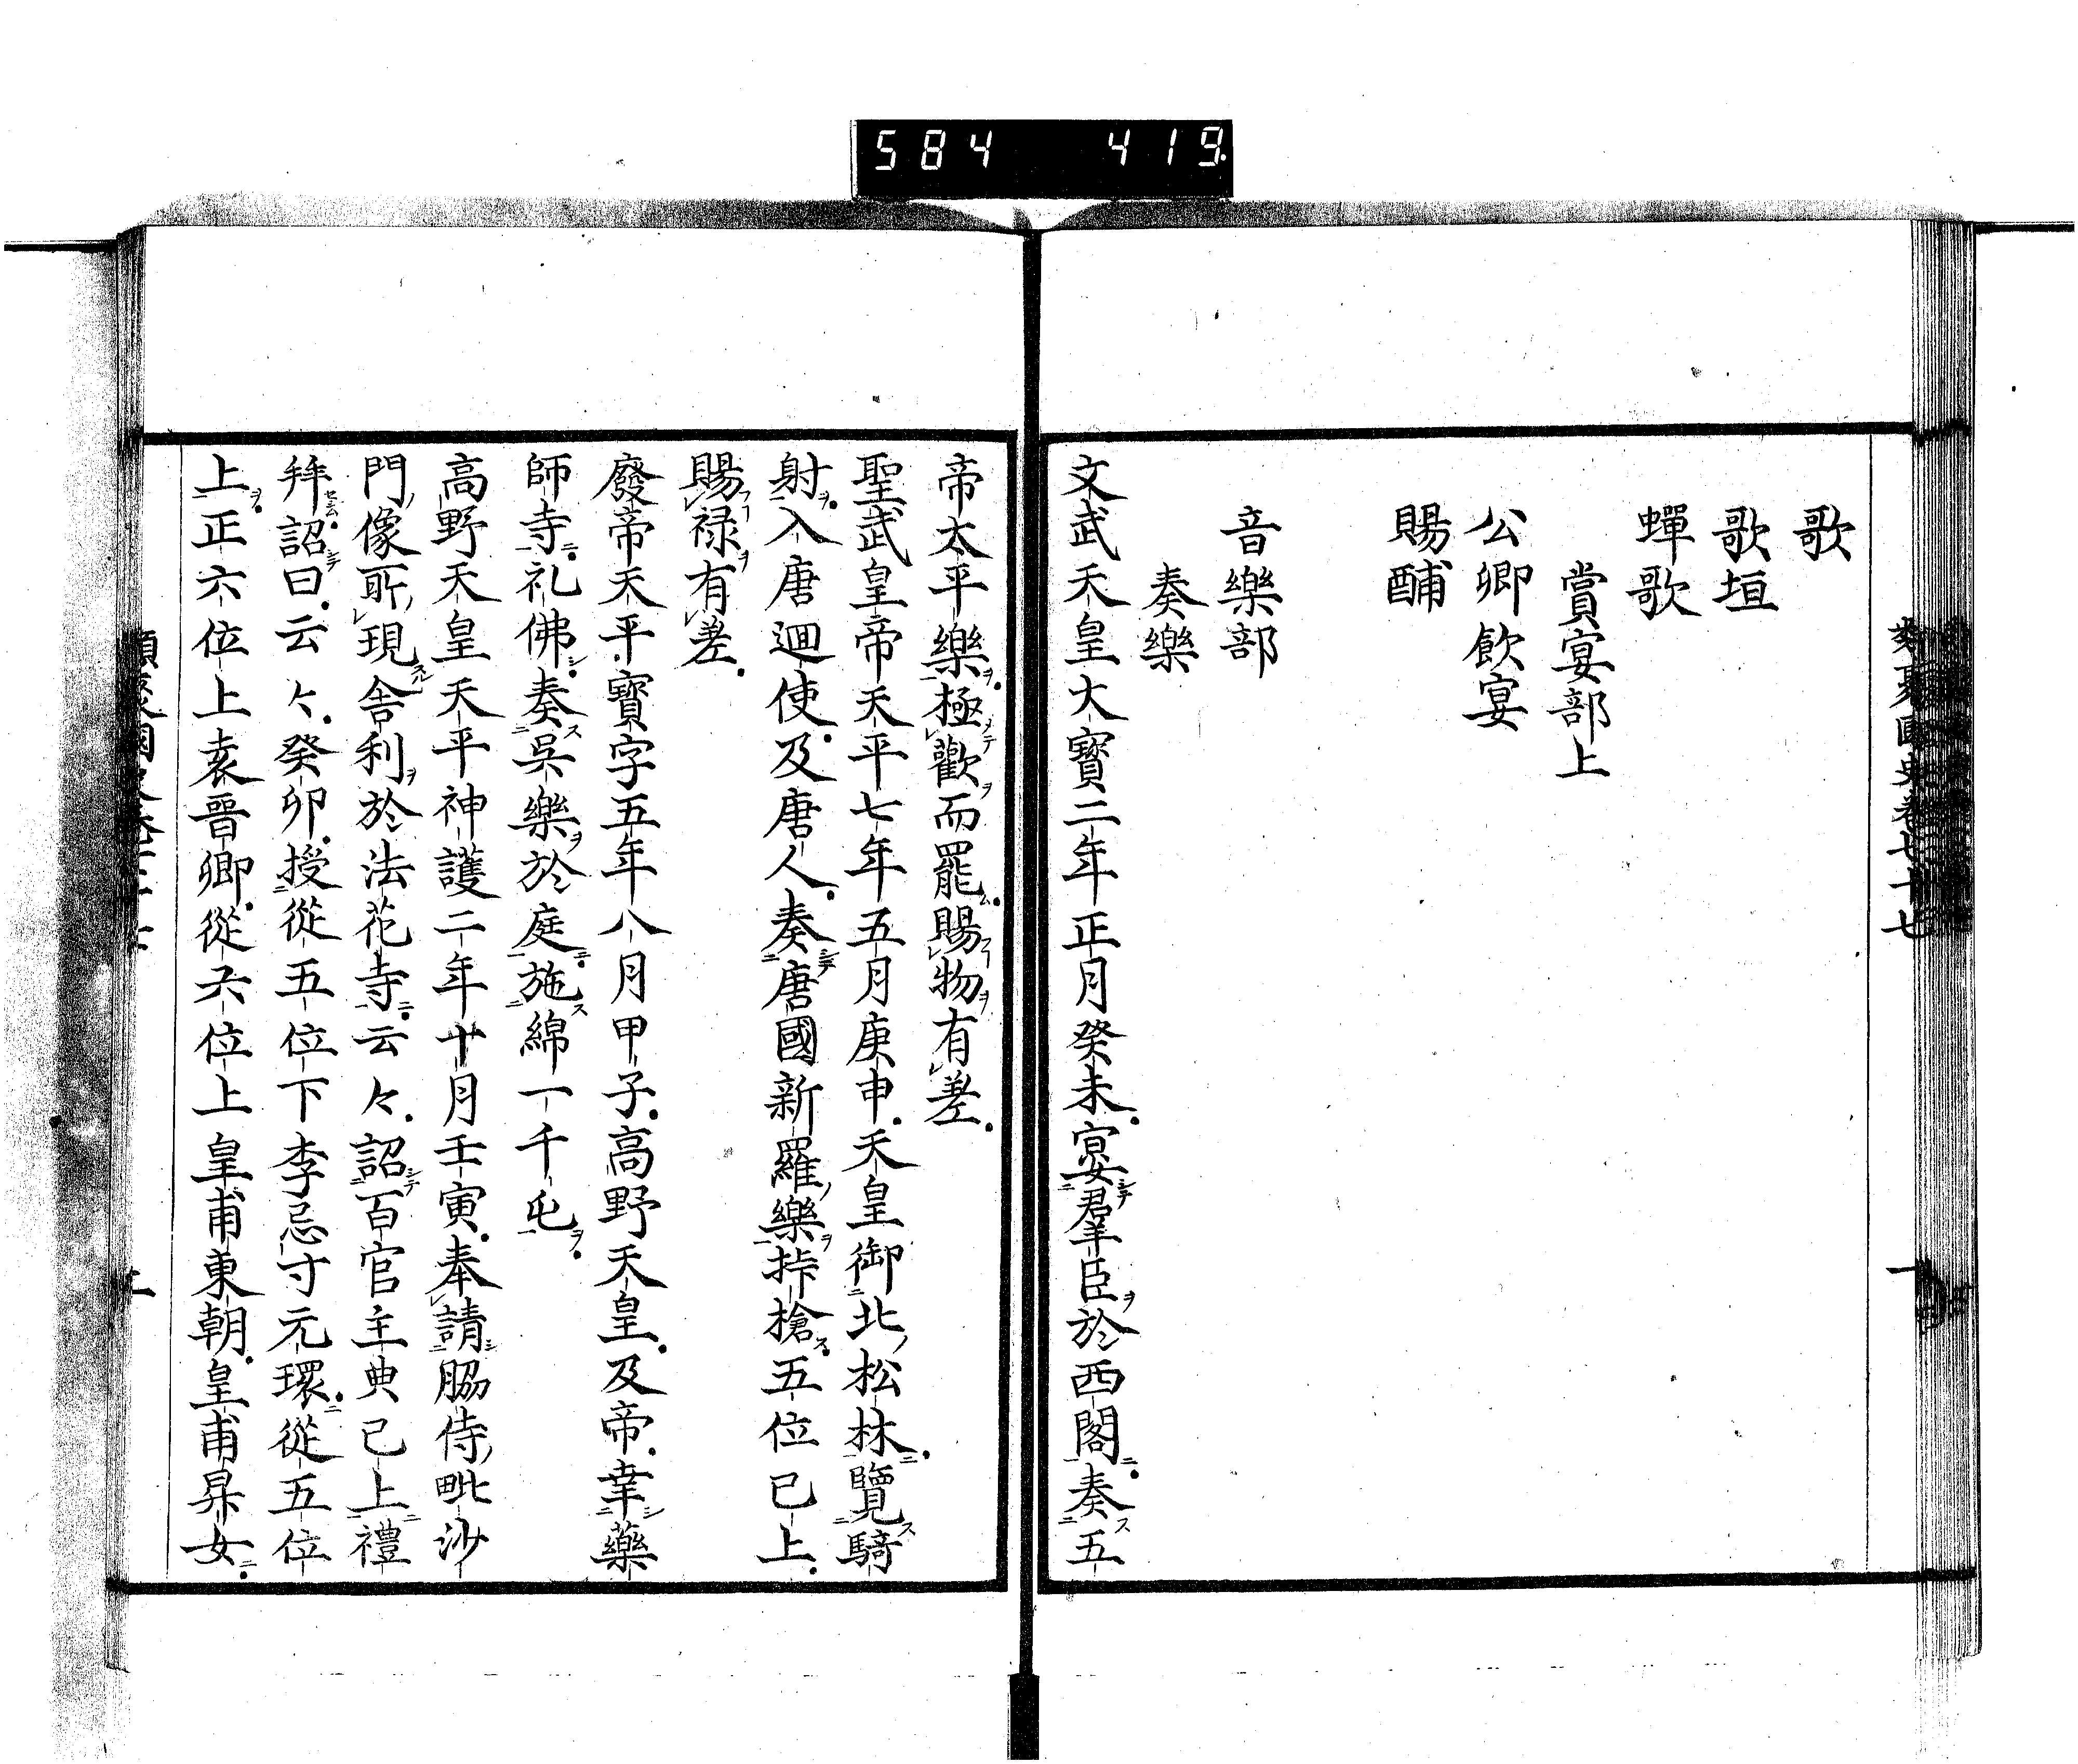 584 419
類聚國史卷七十七 一
歌
歌垣
蟬歌
賞宴部上
公卿飲宴
賜酺
音樂部
奏樂
文武天皇大寶二年正月癸未宴群臣於西閣奏五
帝太平樂極歡而罷賜物有差
聖武皇帝天平七年五月庚申天皇御北松林覽騎
射入唐廻使及唐人奏唐國新羅樂挊槍五位已上
賜禄有差
廢帝天平寶字五年八月甲子高野天皇及帝幸藥
師寺礼佛奏吳樂於庭施綿一千屯
高野天皇天平神護二年十月壬寅奉請脇侍毗沙
門像所現舍利於法花寺云々詔百官主典已上禮
拜詔曰云々癸卯授從五位下李忌寸元環從五位
上正六位上袁晋卿從六位上皇甫東朝皇甫昇女